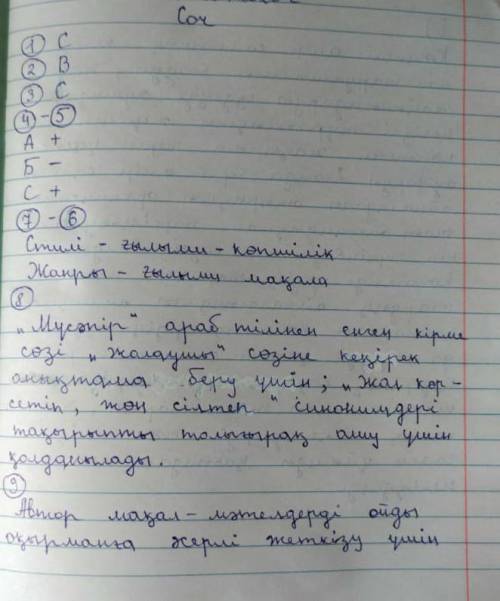 Соч
① С
② В
③ С
④ - ⑤
А +
Б -
С +
⑦ - ⑥
Стилі - ғылыми - көпшілік
Жанры - ғылыми мақала
⑧
„Мүсәпір" араб тілінен енген кірме
сөзі „жолаушы" сөзіне кеңірек
анықтама беру үшін; „жол көр-
сетіп, жөн сілтеп" синонимдері
тақырыпты толығырақ ашу үшін
қолданылады.
⑨
Автор мақал - мәтелдерді ойды
оқырманға жерлі жеткізу үшін